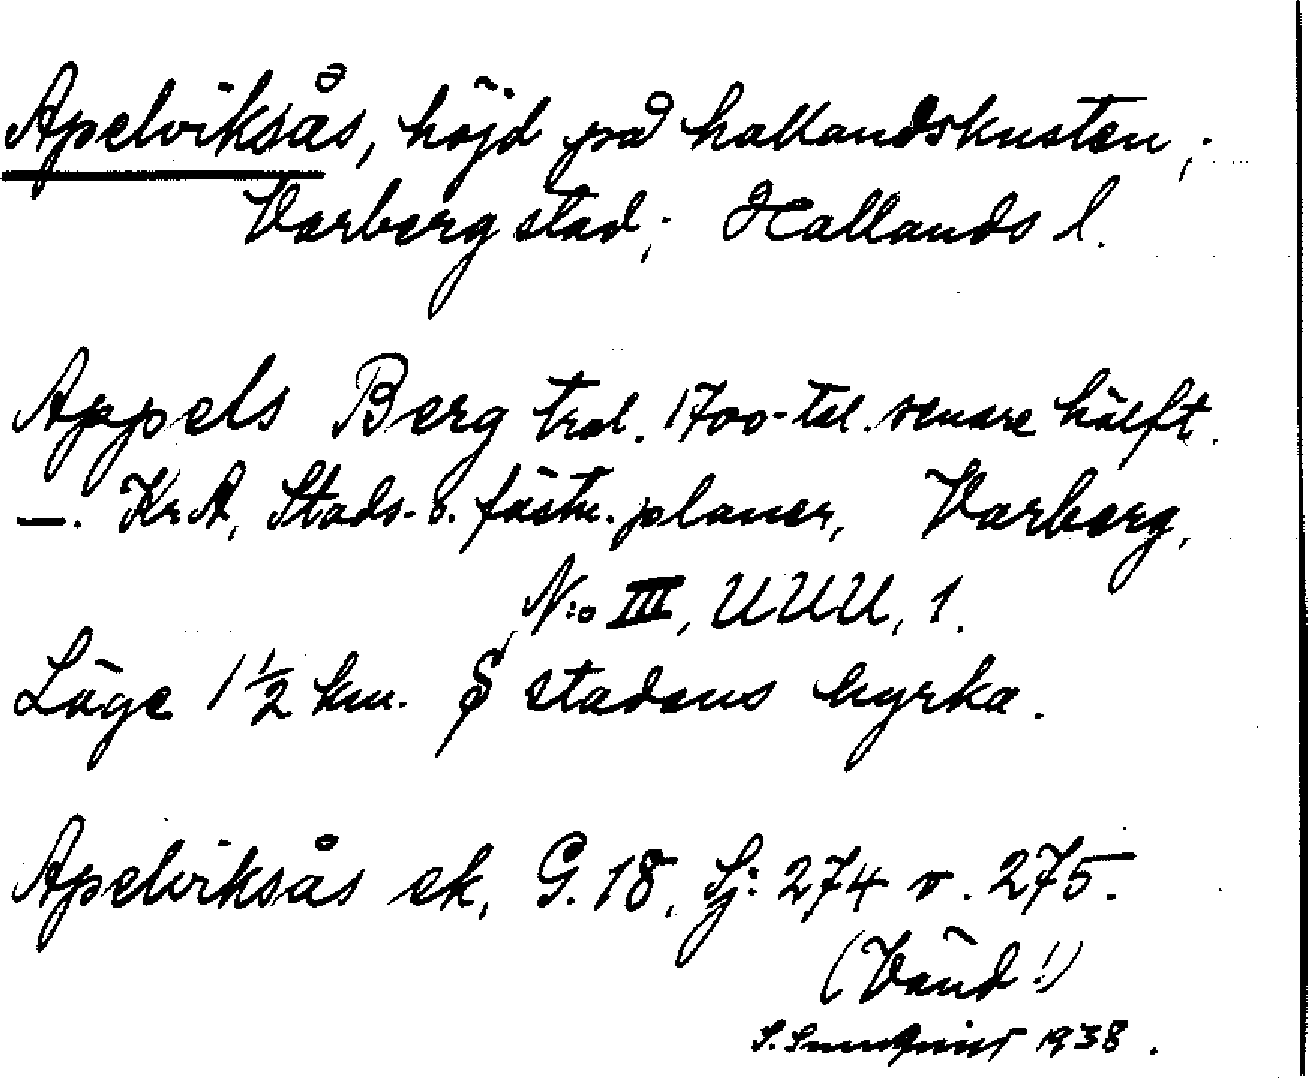 Apelviksås, höjd på hallandskusten;
Varberg stad; Hallands l.
Appels Berg trol. 1700-tal. senare hälft.
—. KrA, Stads- o. fästn. planer, Varberg,
N:o III, UUU, 1.
Läge 1 1/2 km. S stadens kyrka.
Apelviksås ek, G. 18, Sj: 274 v. 275.
(Vänd!)
1938.